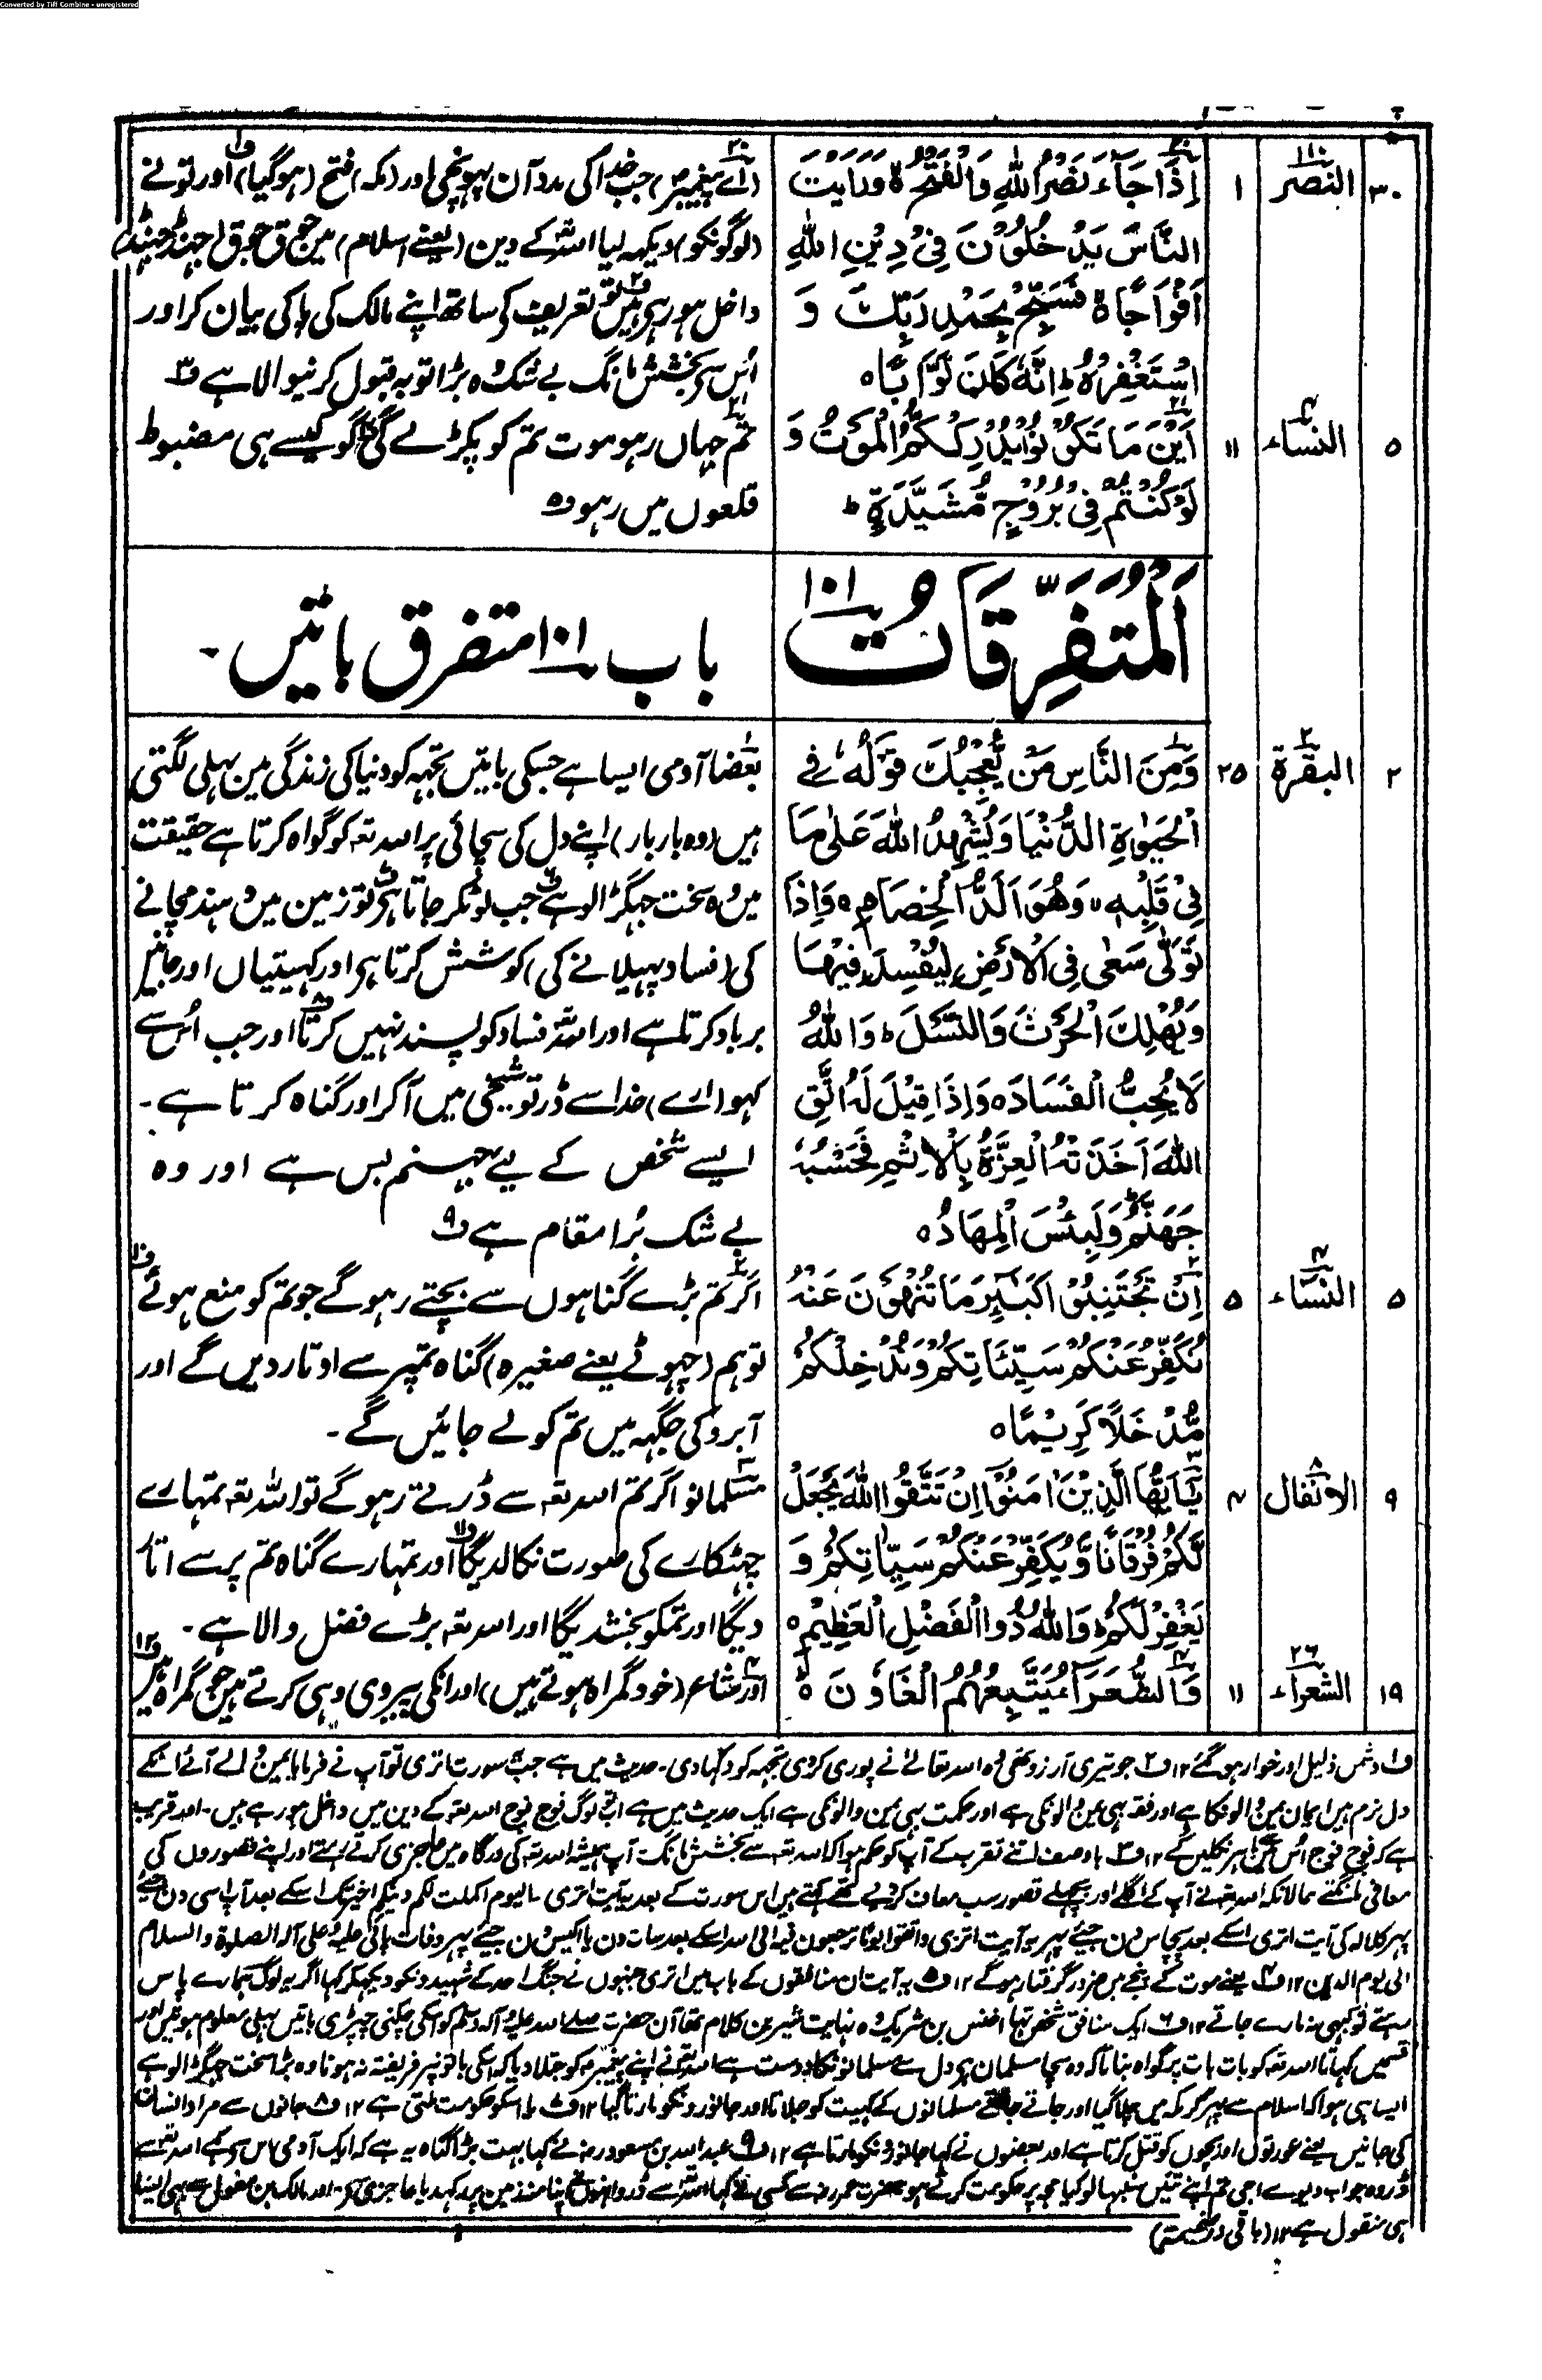 Converted by Tiff Combine - unregistered
۳۰ النصر ۱۱۰ ۱
اِذَا جَآءَ نَصْرُ اللّٰهِ وَالْفَتْحُ ۙ ورایت
النَّاسَ یَدْخُلُوْنَ فِیْ دِیْنِ اللّٰهِ
اَفْوَاجًا ۙ فَسَبِّحْ بِحَمْدِ رَبِّكَ وَ
اسْتَغْفِرْهُ ؕ اِنَّهٗ كَانَ تَوَّابًا ۰
(اے پیغمبر) جب خدا کی مدد آن پہونچی اور (مکہ) فتح (ہوگیا) اور تونے
(لوگونکو) دیکہہ لیا اللہ کے دین (یعنے اسلام) مین جوق جوق (جہنڈ جہنڈ)
داخل ہو رہے ہیں تو تعریف کی ساتھ اپنے مالک کی پاکی بیان کر اور
اُس سے بخشش مانگ بے شک وہ بڑا توبہ قبول کرنیوالا ہے ف۳
۵ النساء ۴ ۱۱
اَیْنَ مَا تَكُوْنُوْا یُدْرِكْكُّمُ الْمَوْتُ وَ
لَوْ كُنْتُمْ فِیْ بُرُوْجٍ مُّشَیَّدَةٍ ؕ
تم جہاں رہو موت تم کو پکڑ لے گی گو کیسے ہی مضبوط
قلعوں میں رہو ف۵
اَلْمُتَفَرِّقَاتُ ۱۰۱
باب ۱۰۱ متفرق باتیں ۔
۲ البقرة ۲ ۲۵
وَمِنَ النَّاسِ مَنْ یُّعْجِبُكَ قَوْلُهٗ فے
الْحَیٰوةِ الدُّنْیَا وَیُشْهِدُ اللّٰهَ عَلٰی مَا
فِیْ قَلْبِهٖ ۙ وَهُوَ اَلَدُّ الْخِصَامِ ۰ وَاِذَا
تَوَلّٰی سَعٰی فِی الْاَرْضِ لِیُفْسِدَ فِیْهَا
وَیُهْلِكَ الْحَرْثَ وَالنَّسْلَ ؕ وَاللّٰهُ
لَا یُحِبُّ الْفَسَادَ ۰ وَاِذَا قِیْلَ لَهُ اتَّقِ
اللّٰهَ اَخَذَتْهُ الْعِزَّةُ بِالْاِثْمِ فَحَسْبُهٗ
جَهَنَّمُ وَلَبِئْسَ الْمِهَادُ ۰
بعضا آدمی ایسا ہے جسکی باتیں تجہہ کو دنیا کی زندگی مین بہلی لگتی
ہیں (وہ بار بار) اپنے دل کی سچائی پر اللہ تعہ کو گواہ کرتا ہے حقیقت
میں وہ سخت جہگڑالو ہے جب لوٹکر جاتا ہے تو زمین میں وہند مچانے
کی (فساد پہیلانے کی) کوشش کرتا ہے اور کہیتیاں اور جانیں
برباد کرتا ہے اور اللہ فساد کو پسند نہیں کرتا اور جب اُس سے
کہو (ارے) خدا سے ڈر تو شیخی میں آکر اور گناہ کرتا ہے ۔
ایسے شخص کے لیے جہنم بس ہے اور وہ
بے شک بُرا مقام ہے ف۹
۵ النساء ۴ ۵
اِنْ تَجْتَنِبُوْا كَبَآئِرَ مَا تُنْهَوْنَ عَنْهُ
نُكَفِّرْ عَنْكُمْ سَیِّئَاتِكُمْ وَنُدْخِلْكُمْ
مُّدْخَلًا كَرِیْمًا ۰
اگر تم بڑے گناہوں سے بچتے رہو گے جو تم کو منع ہوئے ف۱۰
تو ہم (چہوٹے یعنے صغیرہ) گناہ تمپر سے اوتار دیں گے اور
آبرو کی جگہہ میں تم کو لے جائیں گے ۔
۹ الانفال ۸ ۴
یٰٓاَیُّهَا الَّذِیْنَ اٰمَنُوْٓا اِنْ تَتَّقُوا اللّٰهَ یَجْعَلْ
لَّكُمْ فُرْقَانًا وَّیُكَفِّرْ عَنْكُمْ سَیِّاٰتِكُمْ وَ
یَغْفِرْ لَكُمْ ؕ وَاللّٰهُ ذُوا الْفَضْلِ الْعَظِیْمِ ۰
مسلمانو اگر تم اللہ تعہ سے ڈرتے رہو گے تو اللہ تعہ تمہارے
چہٹکارے کی صورت نکالدیگا ف۱۱ اور تمہارے گناہ تم پر سے اتار
دیگا اور تمکو بخشدیگا اور اللہ تعہ بڑے فضل والا ہے ۔
۱۹ الشعراء ۲۶ ۱۱
وَالشُّعَرَآءُ یَتَّبِعُهُمُ الْغَاوٗنَ ۰
اور شاعر (خود گمراہ ہوتے ہیں) اور انکی پیروی وہی کرتے ہیں جو گمراہ ہیں ف۱۲
ف۱ دشمن ذلیل اور خوار ہوگئے ۱۲ ف۲ جو تیری آرزو تھی وہ اللہ تعالےٰ نے پوری کردی تجہہ کو دکہادی ۔ حدیث میں ہے جب یہ سورت اتری تو آپ نے فرمایا یمن والے آئے انکے
دل نرم ہیں ایمان یمن والونکا ہے اور فقہ بہی یمن والونکی ہے اور حکمت بہی یمن والونکی ہے ایک حدیث میں ہے اب لوگ فوج فوج اللہ تعہ کے دین میں داخل ہو رہے ہیں ۔ اور قریب
ہے کہ فوج فوج اُس میں سے باہر نکلیں گے ۱۲ ف۳ باوصف اتنے تقرب کے آپ کو حکم ہوا کہ اللہ تعہ سے بخشش مانگ آپ ہمیشہ اللہ تعہ کی درگاہ میں عاجزی کرتے رہتے اور اپنے قصوروں کی
معافی مانگتے حالانکہ اللہ تعہ نے آپ کے اگلے اور پچہلے قصور سب معاف کردیے تھے کہتے ہیں اس سورت کے بعد یہ آیت اتری ۔ الیوم اکملت لکم دینکم اخیر تک اسکے بعد آپ اسی دن جیے
پہر کلالہ کی آیت اتری اسکے بعد پچاس دن جیئے پہر یہ آیت اتری واتقوا یوما ترجعون فیہ الی اللہ اسکے بعد سات دن یا اکیس دن جیئے پہر وفات پائی علیہ وعلی آلہ الصلوة والسلام
الی یوم الدین ۱۲ ف۴ یعنے موت کے پنجے میں ضرور گرفتار ہوگے ۱۲ ف۵ یہ آیت ان منافقوں کے باب میں اتری جنہوں نے جنگ احد کے شہیدونکو دیکہکر کہا اگر یہ لوگ ہمارے پاس
رہتے تو کبہی نہ مارے جاتے ۱۲ ف۶ ایک منافق شخص تہا اخنس بن شریک وہ نہایت شیرین کلام تھا آن حضرت صلے اللہ علیہ وآلہ وسلم کو اسکی چکنی چپڑی باتیں بہلی معلوم ہوئیں اور
قسمیں کہاتا اللہ تعہ کو بات بات پر گواہ بناتا کہ وہ سچا مسلمان ہے دل سے مسلمانونکا دوست ہے اللہ تعہ نے اپنے پیغمبر کو جتلا دیا کہ اسکی باتونپر فریفتہ نہ ہونا وہ بڑا سخت جہگڑالو ہے
ایسا ہی ہوا کہ اسلام سے پہر گر مکہ میں چلا گیا اور جاتے جاتے مسلمانوں کے کہیت کو جلاتا اور جانورونکو مارتا گیا ۱۲ ف۷ یا اسکو حکومت ملتی ہے ۱۲ ف۸ جانوں سے مراد انسان
کی جانیں یعنے عورتوں اور بچوں کو قتل کرتا ہے اور بعضوں نے کہا جانورونکو مارتا ہے ۱۲ ف۹ عبد اللہ بن مسعود رضہ نے کہا بہت بڑا گناہ یہ ہے کہ ایک آدمی اس سے کہے اللہ تعہ سے
ڈر وہ جواب دیوے اجی تم اپنے تئیں سنبہالو کیا مجہپر حکومت کرتے ہو حضرت عمر رضہ سے کسی نے کہا اللہ سے ڈرو انہوں نے اپنا منہ زمین پر رکہدیا عاجزی سے اور مالک بن مغول سے بہی ایسا
ہی منقول ہے ۱۲ (باقی در ضمیمہ)